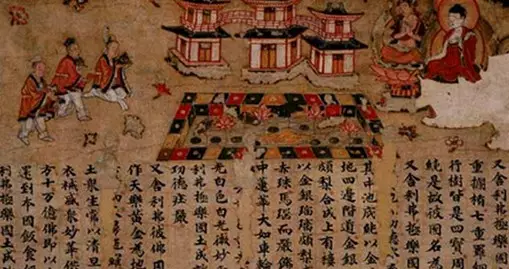 又舍利弗極樂
重攔楯七重羅
行樹皆是四寶周
繞是故彼國名為
又舍利弗極樂國
其中池底純以金
地四邊階道金銀
頗梨合成上有
以金銀瑠璃頗梨
赤珠馬瑙而嚴飾
中蓮華大如車輪
光白色白光微妙
利弗極樂國土成
功德莊嚴
又舍利弗彼佛國
作天樂黃金為地
土眾生常以清旦
衣裓盛眾妙華供
方十万億佛即以
還到本國飯食
利弗極樂國土成